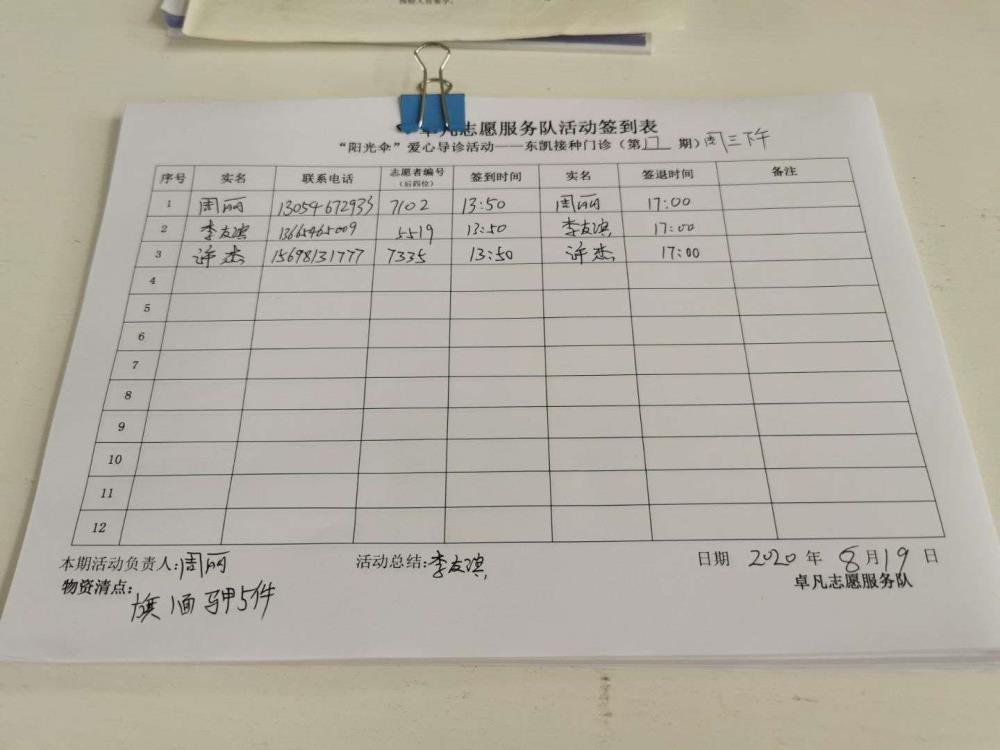 卓凡志愿服务队活动签到表
“阳光伞”爱心导诊活动——东凯接种门诊（第17期）周三下午
序号 实名 联系电话 志愿者编号（后四位） 签到时间 实名 签退时间 备注
1 周丽 13054672933 7102 13:50 周丽 17:00
2 李友滨 13665465009 5519 13:50 李友滨 17:00
3 许杰 15698131777 7335 13:50 许杰 17:00
4
5
6
7
8
9
10
11
12
本期活动负责人:周丽 活动总结:李友滨 日期 2020 年 8月19 日
物资清点: 旗1面 马甲5件 卓凡志愿服务队